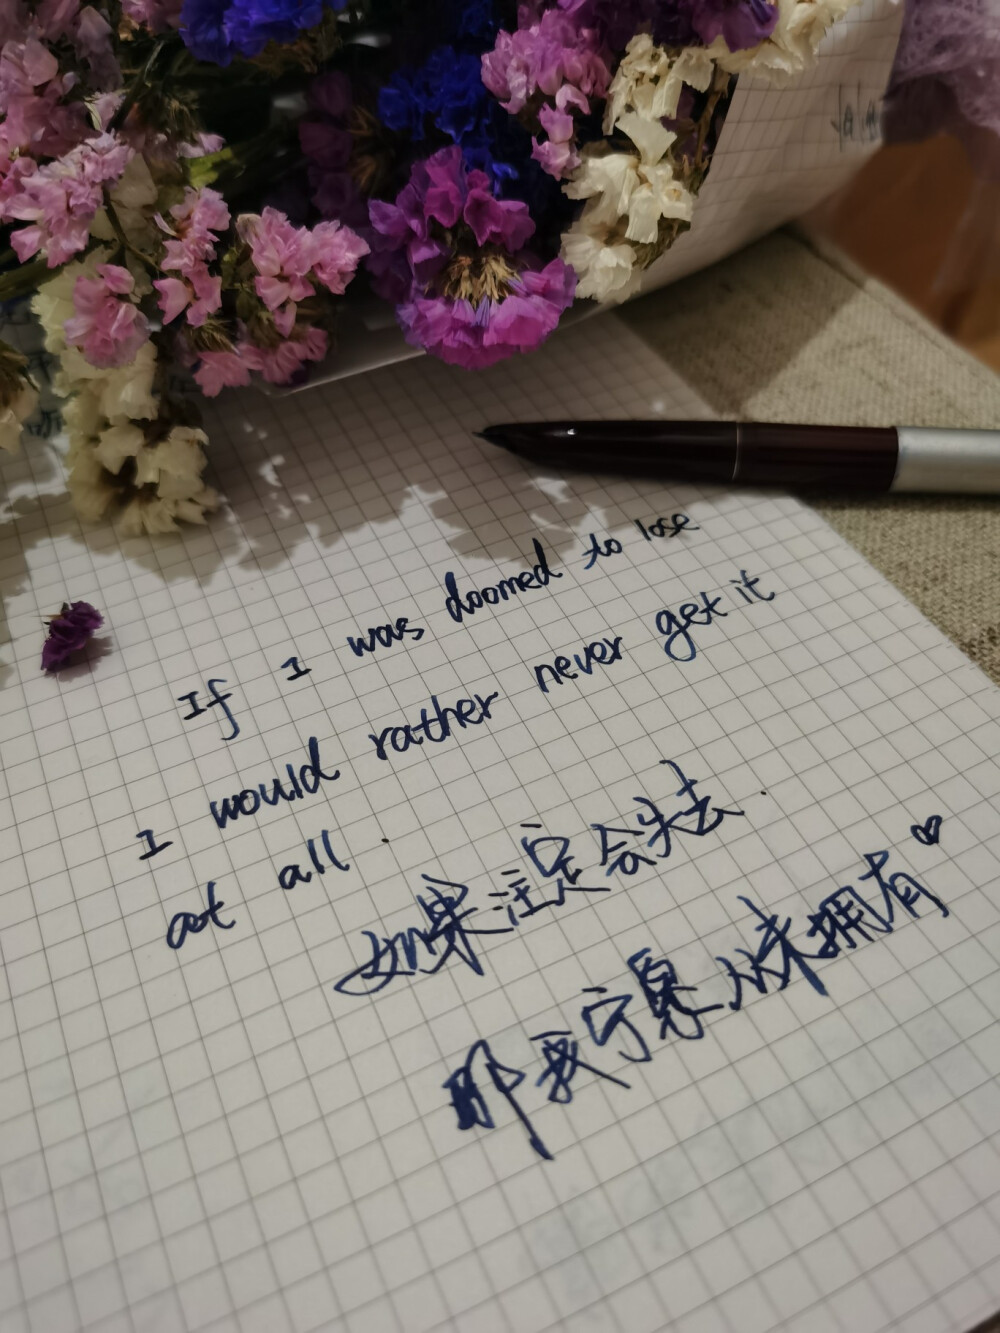 If I was doomed to lose
I would rather never get it
at all.
如果注定会失去.
那我宁愿从未拥有♡